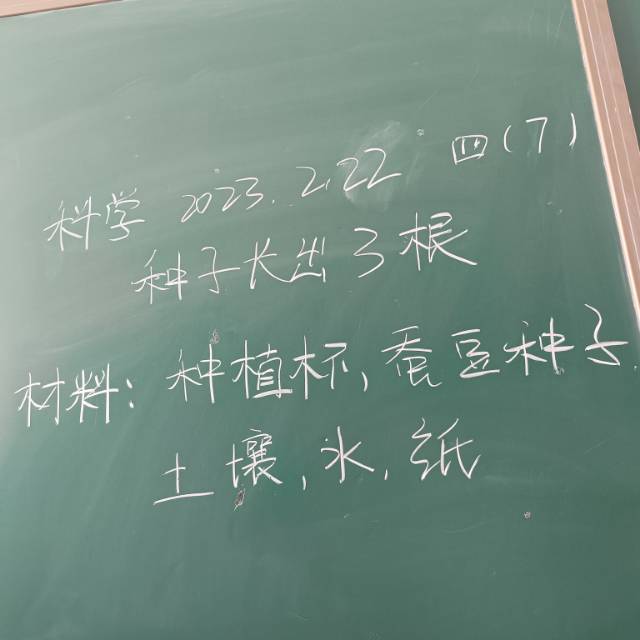 科学 2023.2.22 四(7)
种子长出了根
材料:种植杯,蚕豆种子,
土壤,水,纸